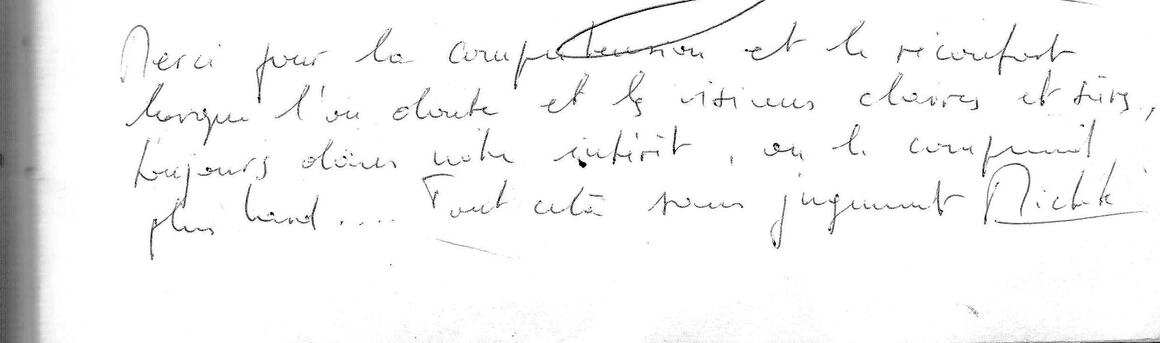 Merci pour la compréhension et le réconfort
lorsque l'on doute et les visions claires et sûres,
toujours dans notre intérêt, on le comprend
plus tard.... Tout cela sans jugement